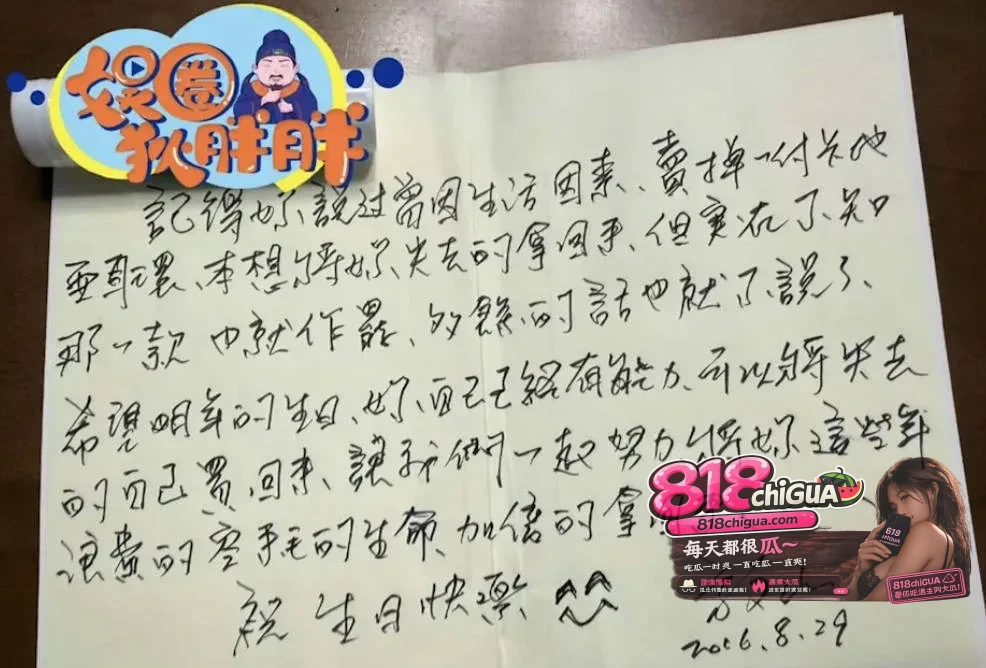 娱圈
狄胖胖
記得妳說过曾因生活因素、賣掉一付卡地
亞耳環、本想將妳失去的拿回來、但実在不知
那一款 也就作罷、多餘的話也就不說了、
希望明年的生日、妳自己已經有能力、可以將失去
的自己買回來、讓我們一起努力將妳這些年
浪費的的生命、加倍的拿
祝 生日快樂
2016.8.29
818chiGUA
818chigua.com
每天都很瓜～
吃瓜一时爽 一直吃瓜一直爽!
818
818chiGUA